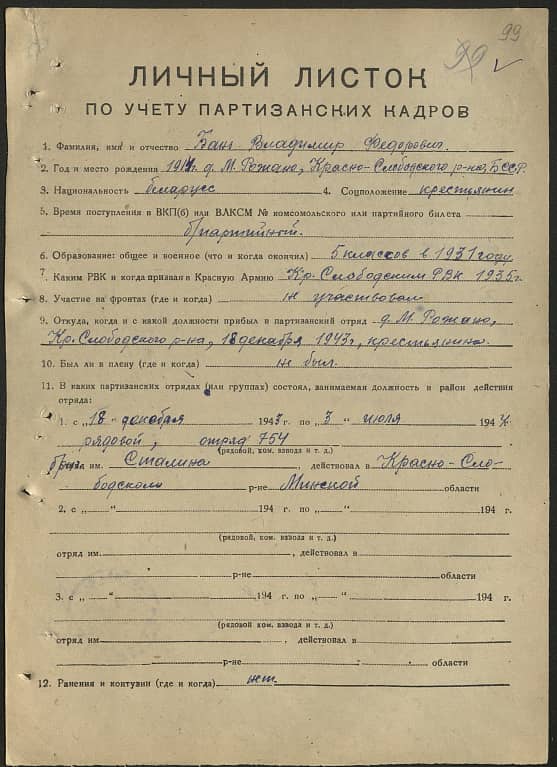 99
99
ЛИЧНЫЙ ЛИСТОК
ПО УЧЕТУ ПАРТИЗАНСКИХ КАДРОВ
1. Фамилия, имя и отчество Бань Владимир Федорович.
2. Год и место рождения 1914 г. д. М. Рожано, Красно-Слободского р-на, БССР.
3. Национальность беларусс 4. Соцположение крестьянин
5. Время поступления в ВКП(б) или ВЛКСМ № комсомольского или партийного билета
б/партийный.
6. Образование: общее и военное (что и когда окончил) 5 классов в 1931 году.
7. Каким РВК и когда призван в Красную Армию Кр. Слободским РВК 1935 г.
8. Участие на фронтах (где и когда) не участвовал
9. Откуда, когда и с какой должности прибыл в партизанский отряд д. М. Рожано,
Кр. Слободского р-на, 18 декабря 1943 г., крестьянина.
10. Был ли в плену (где и когда) не был.
11. В каких партизанских отрядах (или группах) состоял, занимаемая должность и район действия
отряда:
1. с „18" декабря 1943 г. по „3" июля 1944 г.
рядовой, отряд 754
(рядовой, ком. взвода и т. д.)
бриг. им. Сталина, действовал в Красно-Сло-
бодском р-не Минской области
2. с „ " 194 г. по „ " 194 г.
(рядовой, ком. взвода и т. д.)
отряд им. , действовал в
р-не области
3. с „ " 194 г. по „ " 194 г.
(рядовой, ком. взвода и т. д.)
отряд им. , действовал в
р-не области
12. Ранения и контузии (где и когда) нет.